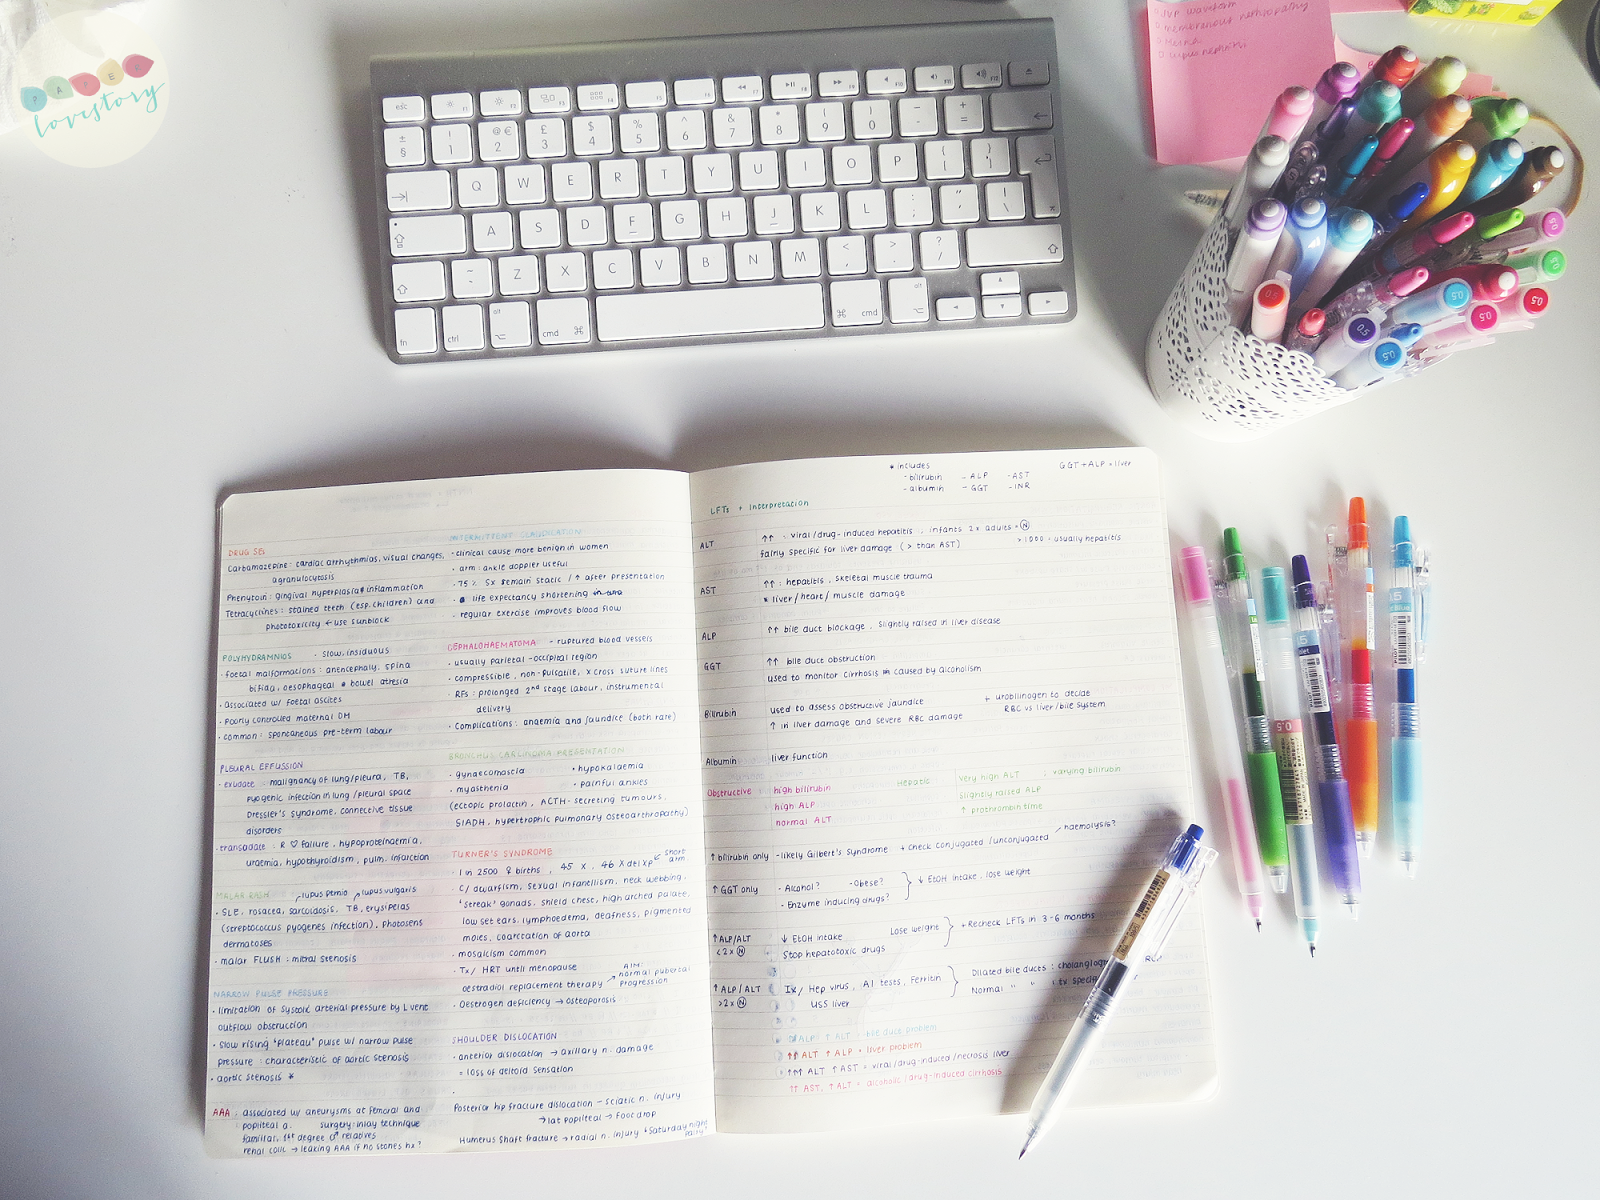 PAPER
lovestory
esc F1 F2 F3 F4 F5 F6 F7 F8 F9 F10 F11 F12
± § ! 1 @ € 2 £ 3 $ 4 % 5 ^ 6 & 7 * 8 ( 9 ) 0 _ - + =
Q W E R T Y U I O P { [ } ]
A S D F G H J K L : ; " ' | \
~ ` Z X C V B N M < , > . ? /
fn ctrl alt cmd cmd alt
membranous nephropathy
lupus nephritis
0.5
0.5
0.5
0.5
0.5
DRUG SEs
Carbamazepine: cardiac arrhythmias, visual changes,
agranulocytosis
Phenytoin: gingival hyperplasia & inflammation
Tetracyclines: stained teeth (esp. children) and
phototoxicity ← use sunblock
POLYHYDRAMNIOS · slow, insidious
· foetal malformations: anencephaly, spina
bifida, oesophageal & bowel atresia
· associated w/ foetal ascites
· Poorly controlled maternal DM
· common: spontaneous pre-term labour
PLEURAL EFFUSION
· exudate: malignancy of lung/pleura, TB,
pyogenic infection in lung/pleural space
Dressler's syndrome, connective tissue
disorders
· transudate: R ♡ failure, hypoproteinaemia,
uraemia, hypothyroidism, pulm. infarction
MALAR RASH lupus pernio lupus vulgaris
· SLE, rosacea, sarcoidosis, TB, erysipelas
(streptococcus pyogenes infection), photosens
dermatoses
· malar FLUSH: mitral stenosis
NARROW PULSE PRESSURE
· limitation of systolic arterial pressure by L vent
outflow obstruction
· slow rising "plateau" pulse w/ narrow pulse
pressure: characteristic of aortic stenosis
· aortic stenosis *
AAA: associated w/ aneurysms at femoral and
popliteal a. surgery: inlay technique
familial, 1st degree ♂ relatives
renal colic → leaking AAA if no stones hx?
INTERMITTENT CLAUDICATION
· clinical cause more benign in women
· arm: ankle doppler useful
· 75% Sx remain static / ↑ after presentation
· life expectancy shortening
· regular exercise improves blood flow
CEPHALOHAEMATOMA - ruptured blood vessels
· usually parietal-occipital region
· compressible, non-pulsatile, x cross suture lines
· RFs: prolonged 2nd stage labour, instrumental
delivery
· Complications: anaemia and jaundice (both rare)
BRONCHUS CARCINOMA PRESENTATION
· gynaecomastia · hypokalaemia
· myasthenia · painful ankles
(ectopic prolactin, ACTH-secreting tumours,
SIADH, hypertrophic pulmonary osteoarthropathy)
TURNER'S SYNDROME
· 1 in 2500 ♀ births, 45 X, 46 X del Xp ← short arm
· C/ dwarfism, sexual infantilism, neck webbing,
'streak' gonads, shield chest, high arched palate,
low set ears, lymphoedema, deafness, pigmented
moles, coarctation of aorta
· mosaicism common
· Tx/ HRT until menopause
oestradiol replacement therapy → AIM: normal pubertal progression
· Oestrogen deficiency → osteoporosis
SHOULDER DISLOCATION
· anterior dislocation → axillary n. damage
= loss of deltoid sensation
Posterior hip fracture dislocation - sciatic n. injury
→ lat popliteal → foot drop
Humerus shaft fracture → radial n. injury "Saturday night palsy"
* includes
- bilirubin - ALP - AST
- albumin - GGT - INR
GGT + ALP = liver
LFTs + Interpretation
ALT ↑↑: viral/drug-induced hepatitis, infants 2x adults = N
fairly specific for liver damage (> than AST) > 1000 = usually hepatitis
AST ↑↑: hepatitis, skeletal muscle trauma
* liver/heart/muscle damage
ALP ↑↑ bile duct blockage, slightly raised in liver disease
GGT ↑↑ bile duct obstruction
used to monitor cirrhosis caused by alcoholism
Bilirubin used to assess obstructive jaundice + urobilinogen to decide
↑ in liver damage and severe RBC damage RBC vs liver/bile system
Albumin liver function
Obstructive high bilirubin Hepatic very high ALT : varying bilirubin
high ALP slightly raised ALP
normal ALT ↑ prothrombin time
↑ bilirubin only - likely Gilbert's Syndrome + check conjugated/unconjugated haemolysis?
↑ GGT only - Alcohol? - Obese? ↓ EtOH intake, lose weight
- Enzyme inducing drugs?
↑ ALP/ALT ↓ EtOH intake Lose weight + Recheck LFTs in 3-6 months
< 2x N Stop hepatotoxic drugs
↑ ALP/ALT Ix/ Hep virus, AI tests, Ferritin Dilated bile ducts:
> 2x N USS liver Normal " "
↑ ALT = bile duct problem
↑↑ ALT ↑ ALP = liver problem
↑↑↑ ALT ↑ AST = viral/drug-induced/necrosis liver
↑↑ AST, ↑ ALT = alcoholic/drug-induced cirrhosis